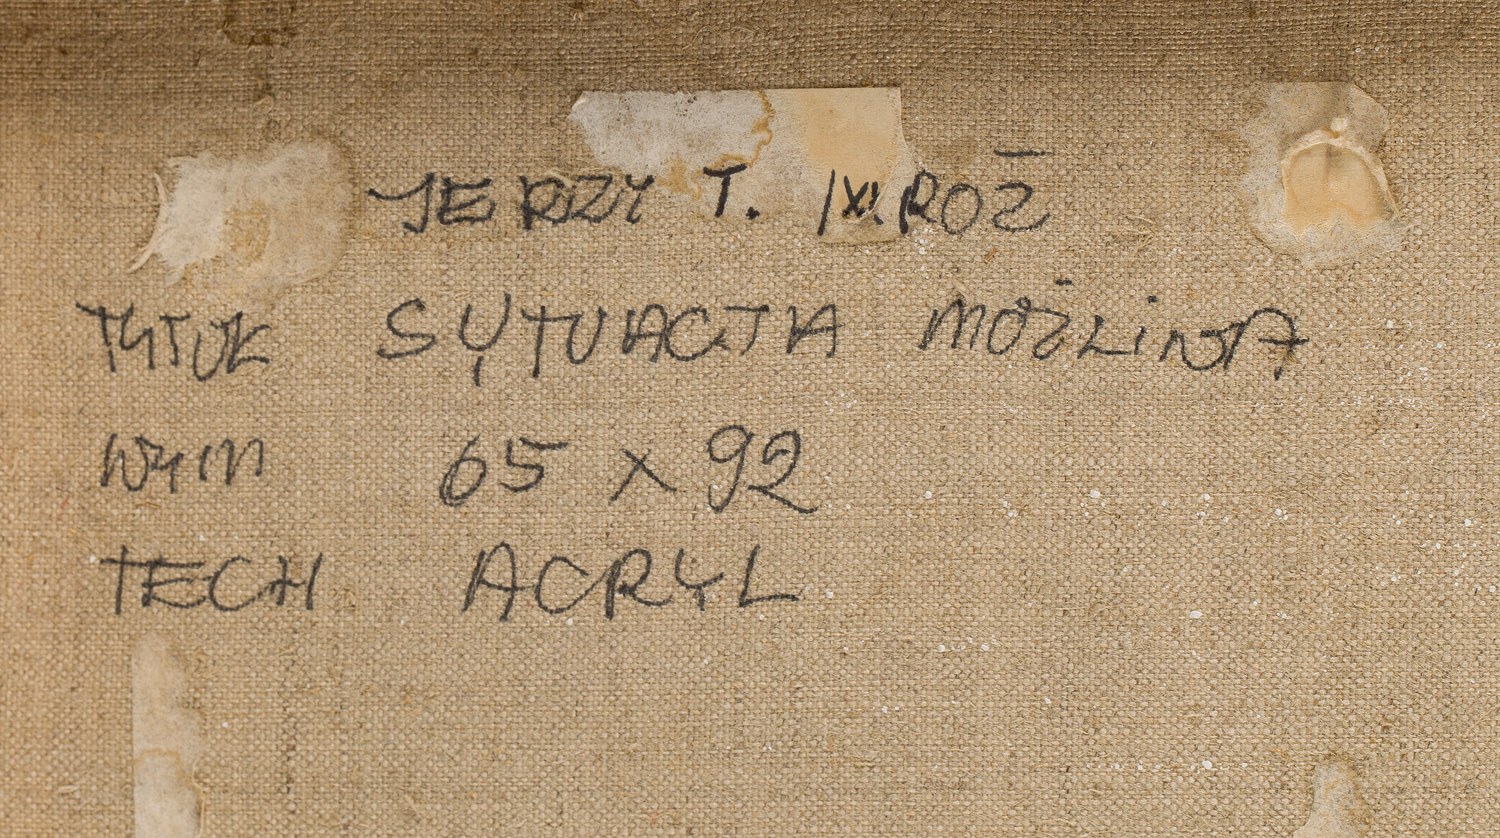 JERZY T. MROŻ
TYTUŁ SYTUACJA MOŻLIWA
WYM 65 x 92
TECH ACRYL